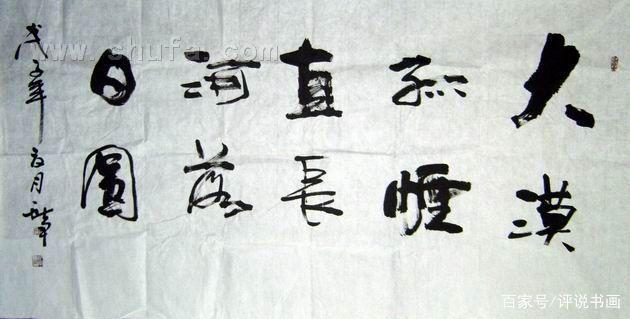 大漠
孤煙
直長
河落
日圓
戊子年
月
www.shufa.com
百家号/评说书画